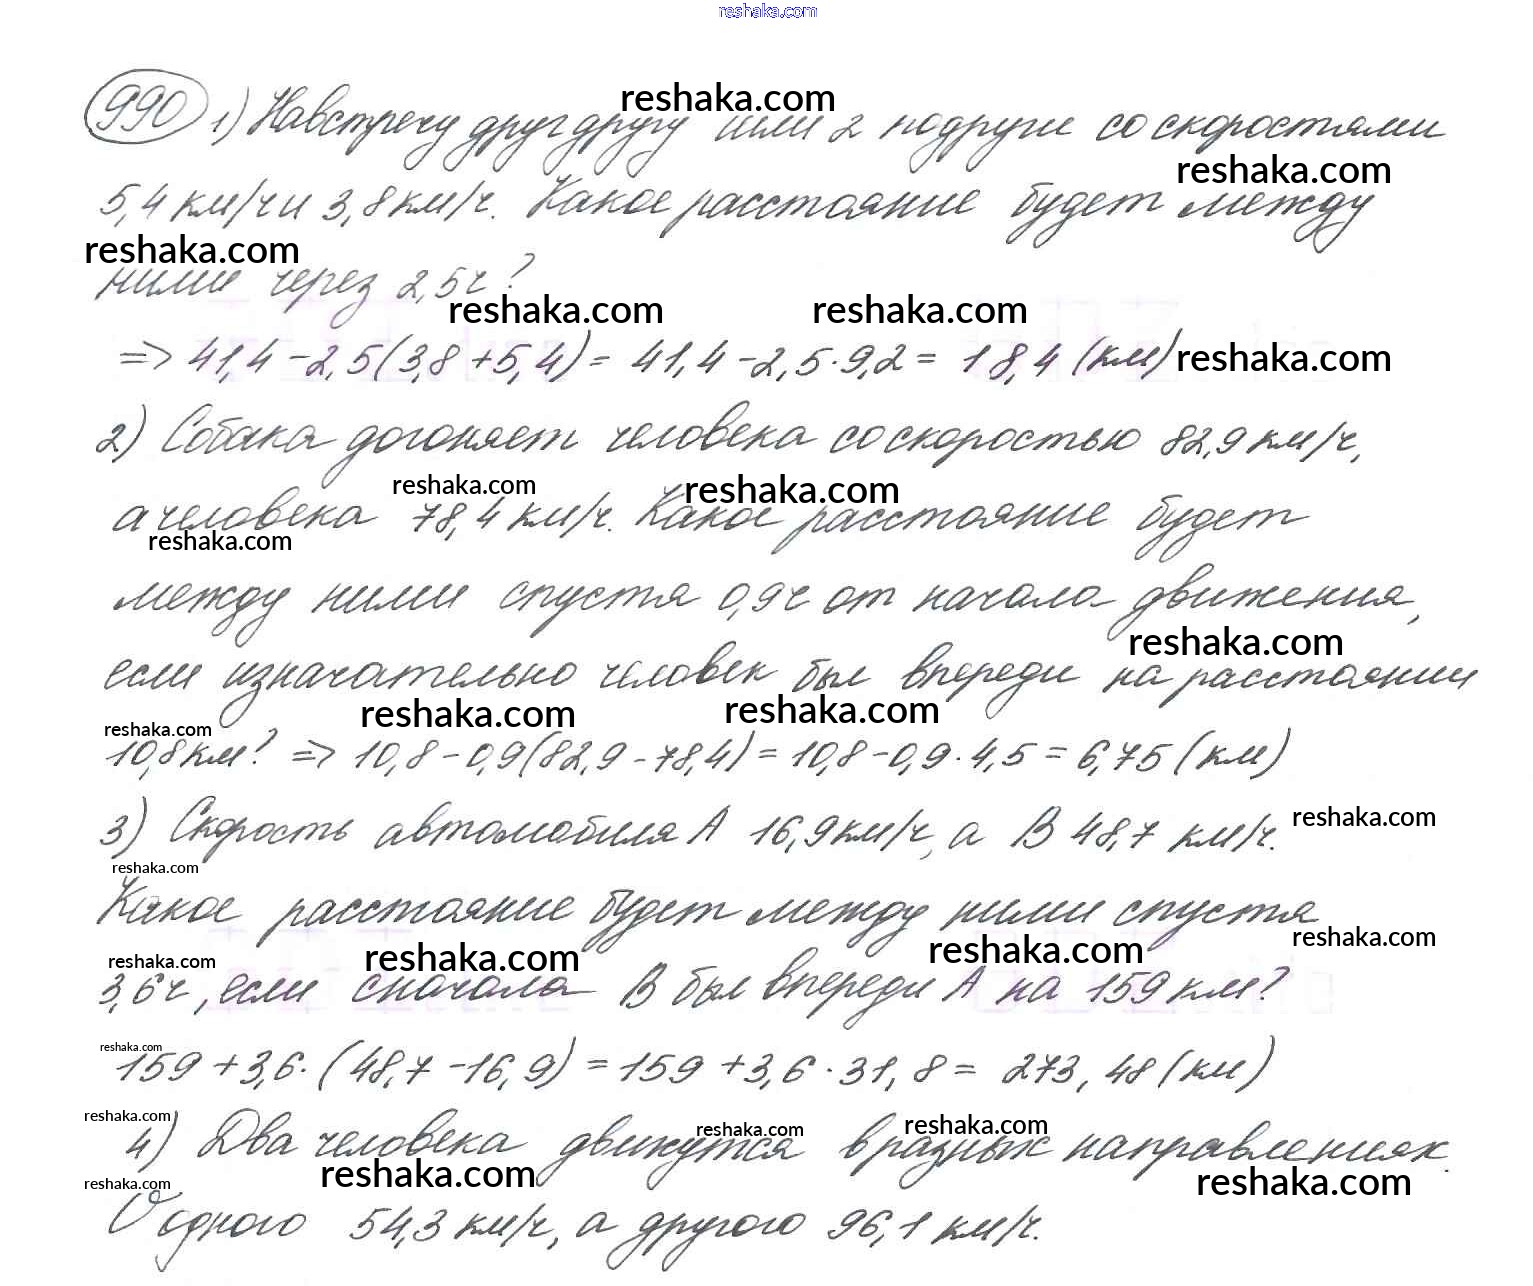 reshaka.com
990 1) Навстречу друг другу шли 2 подруги со скоростями
reshaka.com
reshaka.com
5,4 км/ч и 3,8 км/ч. Какое расстояние будет между
reshaka.com
ними через 2,5 ч?
reshaka.com reshaka.com
=> 41,4 - 2,5(3,8 + 5,4) = 41,4 - 2,5 · 9,2 = 18,4 (км) reshaka.com
2) Собака догоняет человека со скоростью 82,9 км/ч,
reshaka.com reshaka.com
а человека 78,4 км/ч. Какое расстояние будет
reshaka.com
между ними спустя 0,9 ч от начала движения,
reshaka.com
если изначательно человек был впереди на расстоянии
reshaka.com reshaka.com reshaka.com
10,8 км? => 10,8 - 0,9(82,9 - 78,4) = 10,8 - 0,9 · 4,5 = 6,75 (км)
3) Скорость автомобиля А 16,9 км/ч, а В 48,7 км/ч.
reshaka.com
reshaka.com
Какое расстояние будет между ними спустя
reshaka.com
reshaka.com reshaka.com reshaka.com
3,6 ч, если сначала В был впереди А на 159 км?
reshaka.com
159 + 3,6 · (48,7 - 16,9) = 159 + 3,6 · 31,8 = 273,48 (км)
reshaka.com reshaka.com reshaka.com
4) Два человека движутся в разных направлениях.
reshaka.com reshaka.com reshaka.com
У одного 54,3 км/ч, а другого 96,1 км/ч.